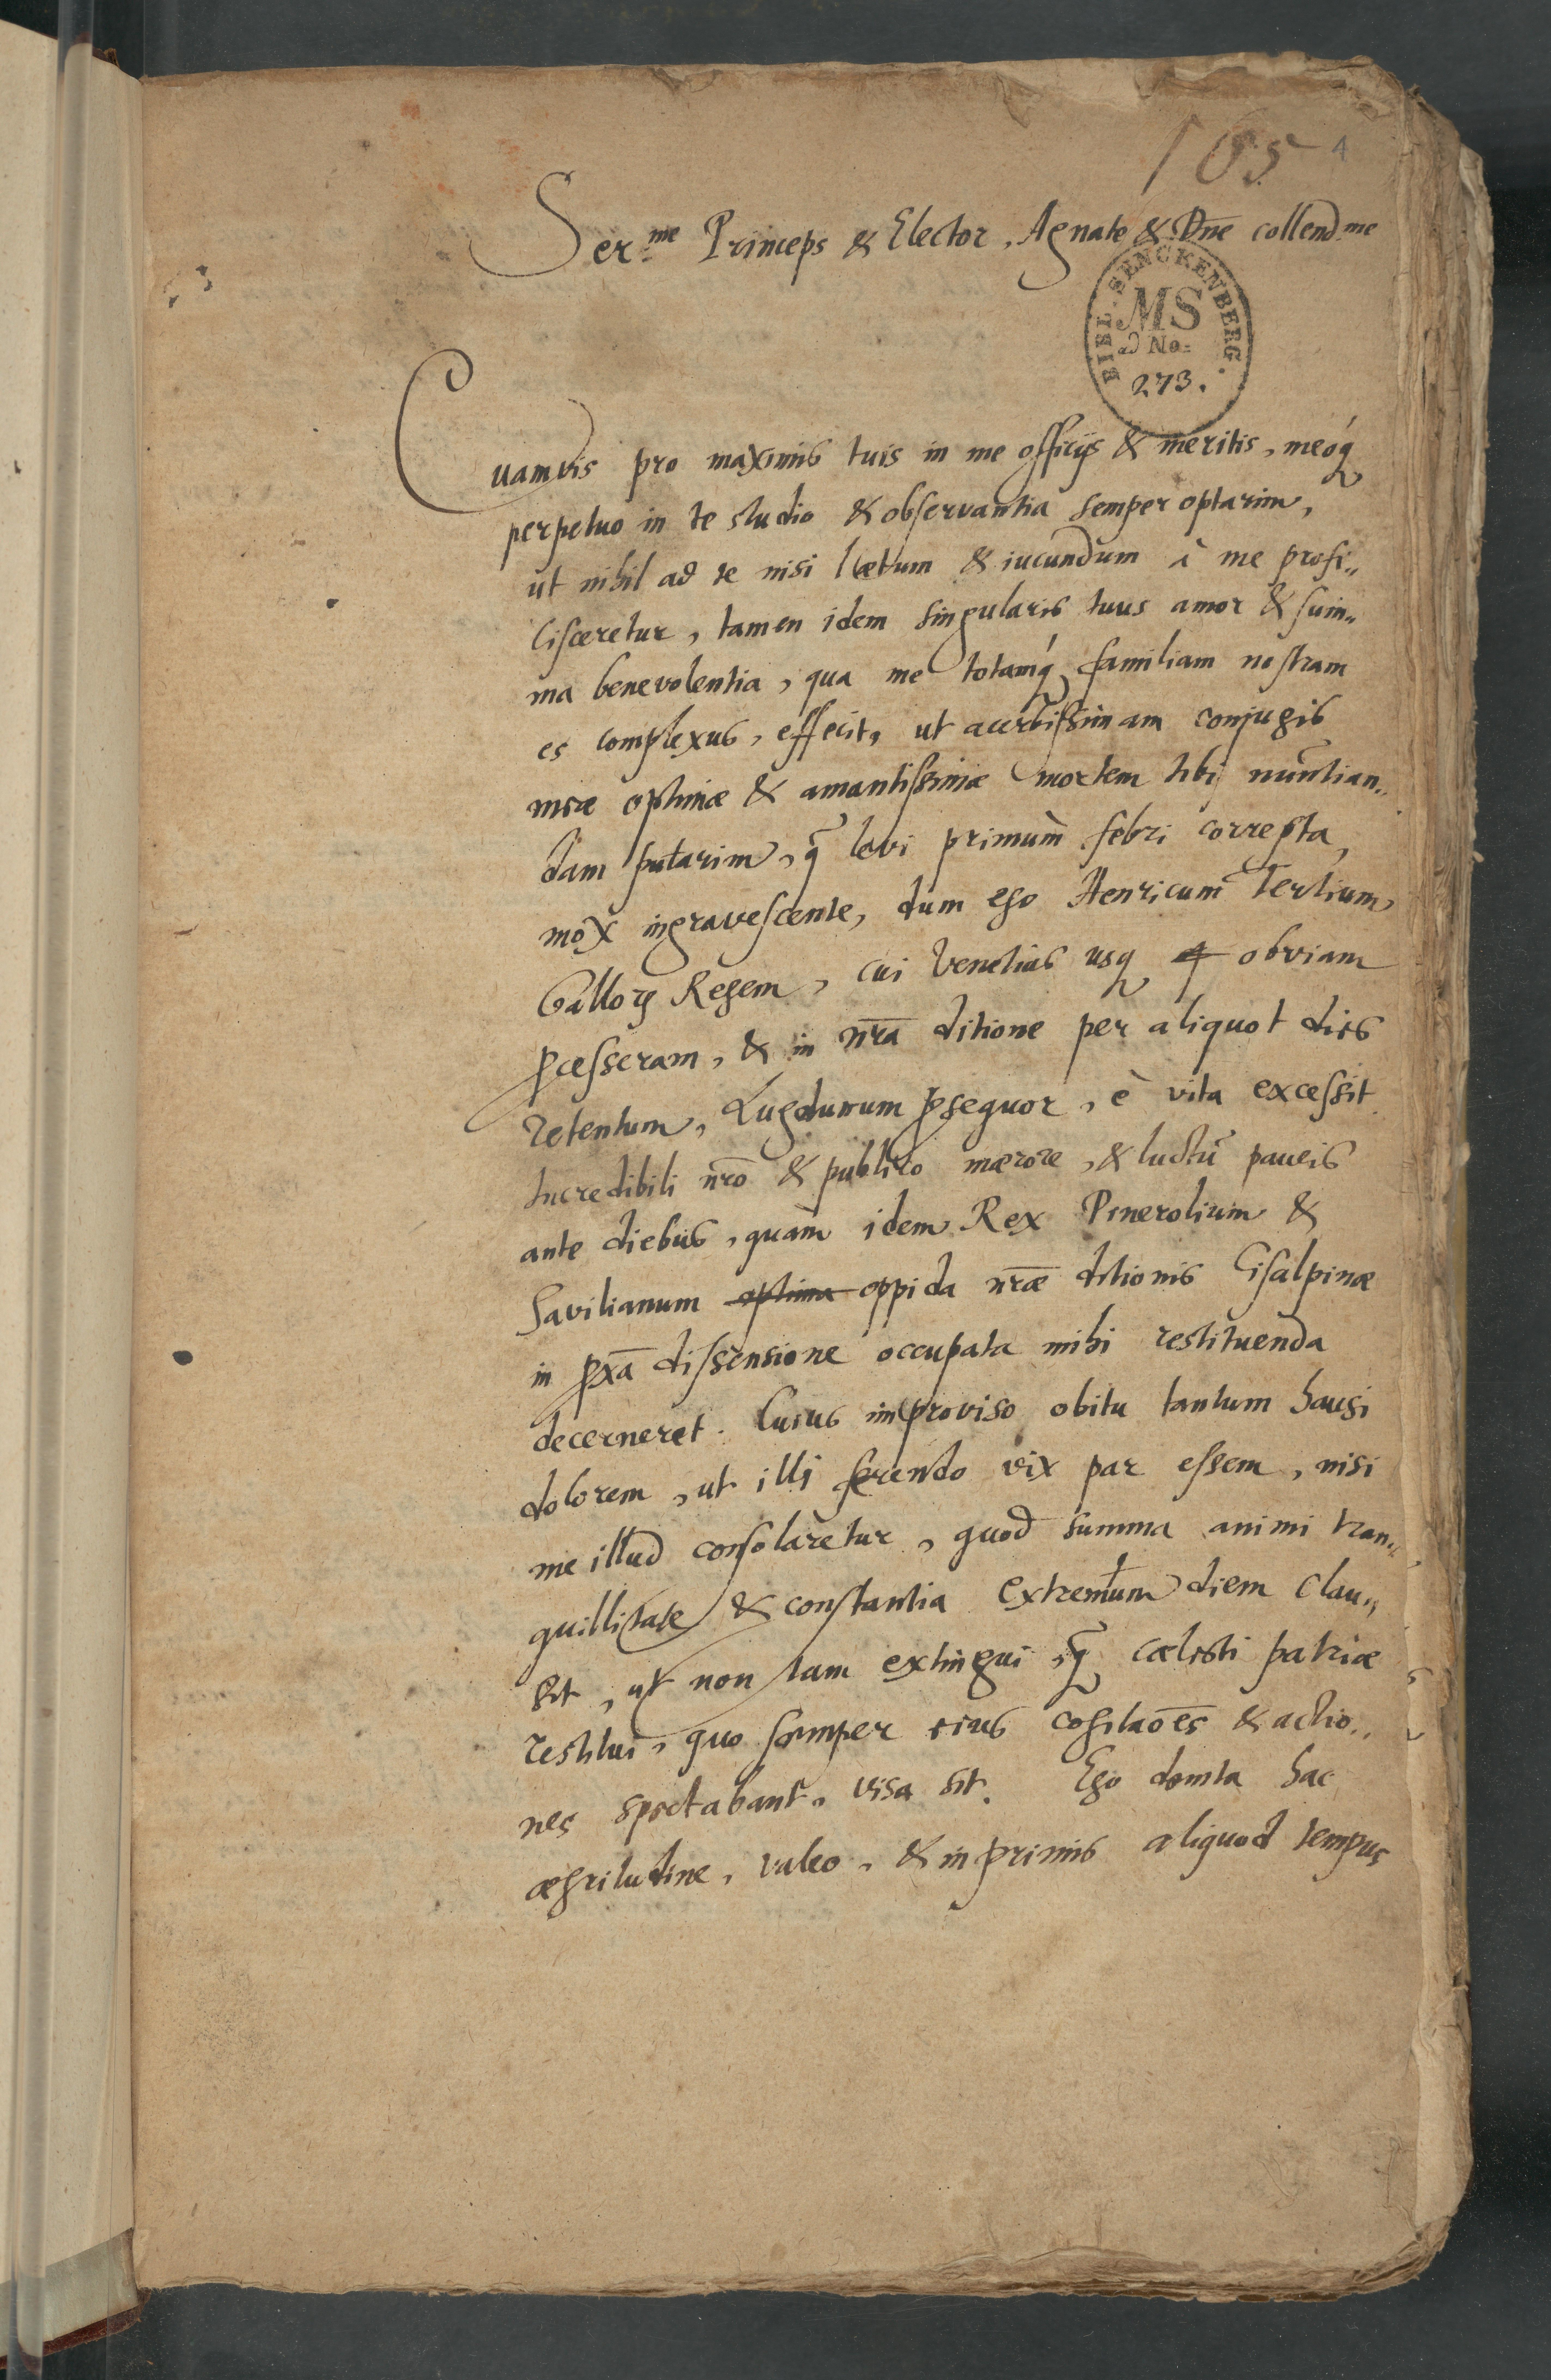 165 4
Ser.me Princeps & Elector, Agnate & Dn̄e collend.me
BIBL. SENCKENBERG.
MS
ad No.
273.
Quamvis pro maximis tuis in me officijs & meritis, meoq́
perpetuo in te studio & observantia semper optarim,
ut nihil ad te nisi lætum & iucundum à me profi„
cisceretur, tamen idem singularis tuus amor & sum„
ma benevolentia, qua me totamq́ familiam nostram
es complexus, effecit, ut acerbissimam conjugis
meæ optimæ & amantissimæ mortem tibi nuntian„
dam putarim, q̄ levi primum febri correpta,
mox ingravescente, dum ego Henricum Tertium
Galloꝝ Regem, cui Venetias usq obviam
ꝓcesseram, & in nr̄a ditione per aliquot dies
retentum, Lugdunum ꝓsequor, è vita excessit
Incredibili nr̄o & publico mærore, & luctu paucis
ante diebus, quam idem Rex Pinerolium &
Savilianum optima oppida nr̄æ ditionis Cisalpinæ
in ꝓxā dissensione occupata mihi restituenda
decerneret. Cuius improviso obitu tantum hausi
dolorem, ut illi ferendo vix par essem, nisi
me illud consolaretur, quod summa animi tran„
quillitate & constantia extremum diem clau„
sit, ut non tam extingui, q̄ cælesti patriæ
restitui, quo semper eius cogitaōes & actio„
nes spectabant, visa sit. Ego demta hac
ægritudine, valeo, & inprimis aliquod tempus